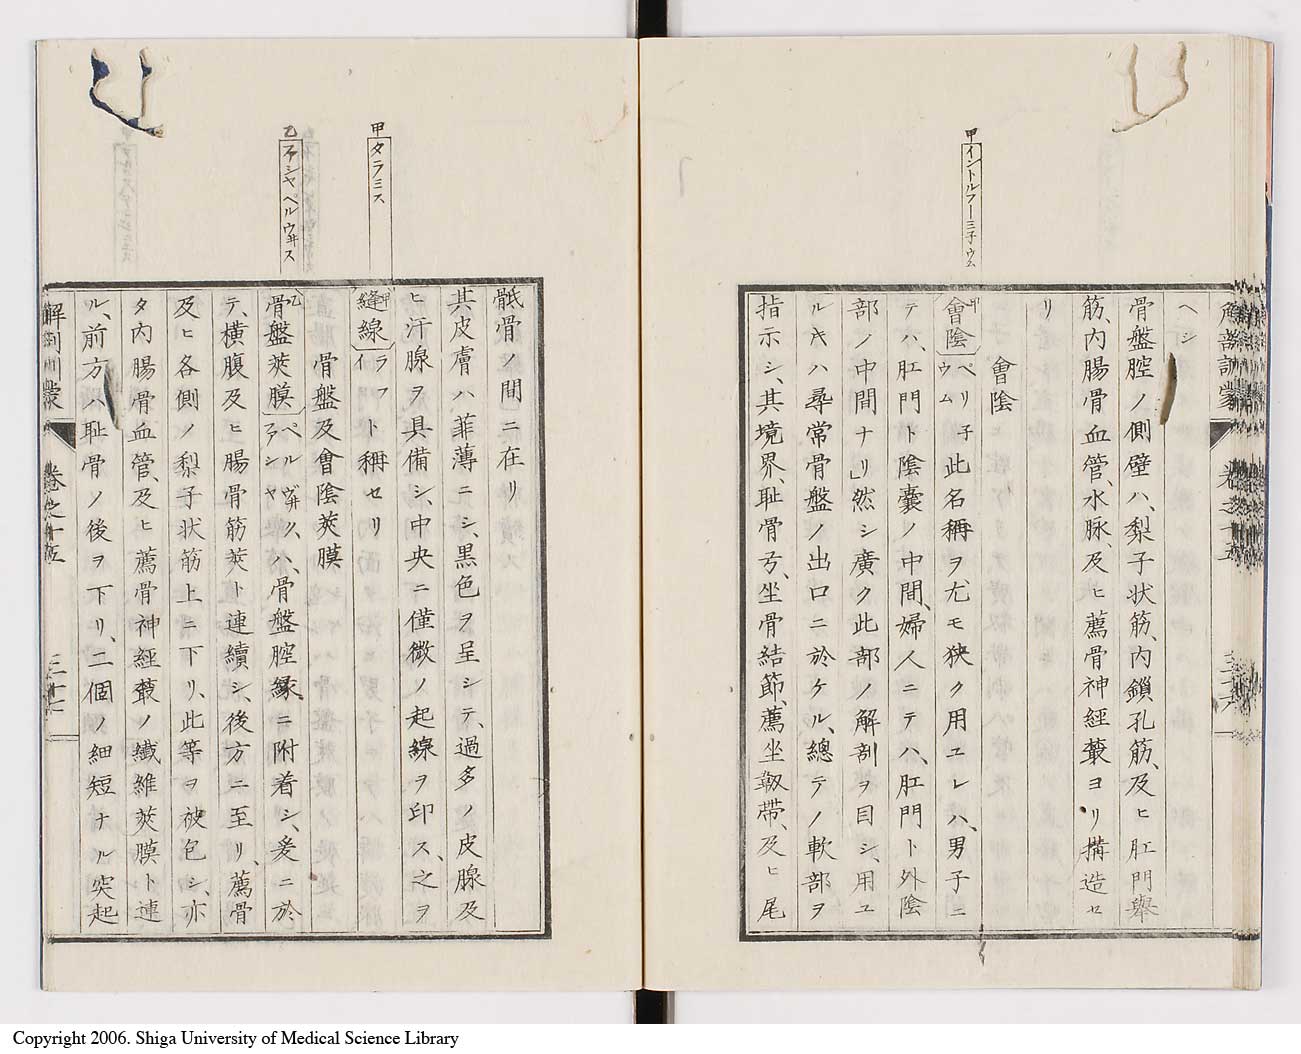 甲 イントルフーミ子ウム
ヘシ
骨盤腔ノ側壁ハ、梨子状筋、内鎖孔筋、及ヒ肛門擧
筋、内腸骨血管、水脉、及ヒ薦骨神經叢ヨリ搆造セ
リ
會陰
會陰ペリ子ウム此名稱ヲ尤モ狹ク用ユレハ、男子ニ
テハ、肛門ト陰嚢ノ中間、婦人ニテハ、肛門ト外陰
部ノ中間ナリ」然シ廣ク此部ノ解剖ヲ目シ、用ユ
ルキハ尋常骨盤ノ出口ニ於ケル、總テノ軟部ヲ
指示シ、其境界、耻骨弓、坐骨結節、薦坐靱帶、及ヒ尾
甲 タラミス
乙 アシヤペルウ井ス
骶骨ノ間ニ在リ
其皮膚ハ菲薄ニシ、黒色ヲ呈シテ、過多ノ皮腺及
ヒ汗腺ヲ具備シ、中央ニ僅微ノ起線ヲ印ス、之ヲ
甲 縫線ラフイト稱セリ
骨盤及會陰莢膜
乙 骨盤莢膜ペルヴ井アシヤハ、骨盤腔縁ニ附着シ、爰ニ於
テ、横腹及ヒ腸骨筋莢ト連續シ、後方ニ至リ、薦骨
及ヒ各側ノ梨子状筋上ニ下リ、此等ヲ被包シ、亦
タ内腸骨血管、及ヒ薦骨神經叢ノ纎維莢膜ト連
ル、前方耻骨ノ後ヲ下リ、二個ノ細短ナル突起
卷之十五
Copyright 2006. Shiga University of Medical Science Library